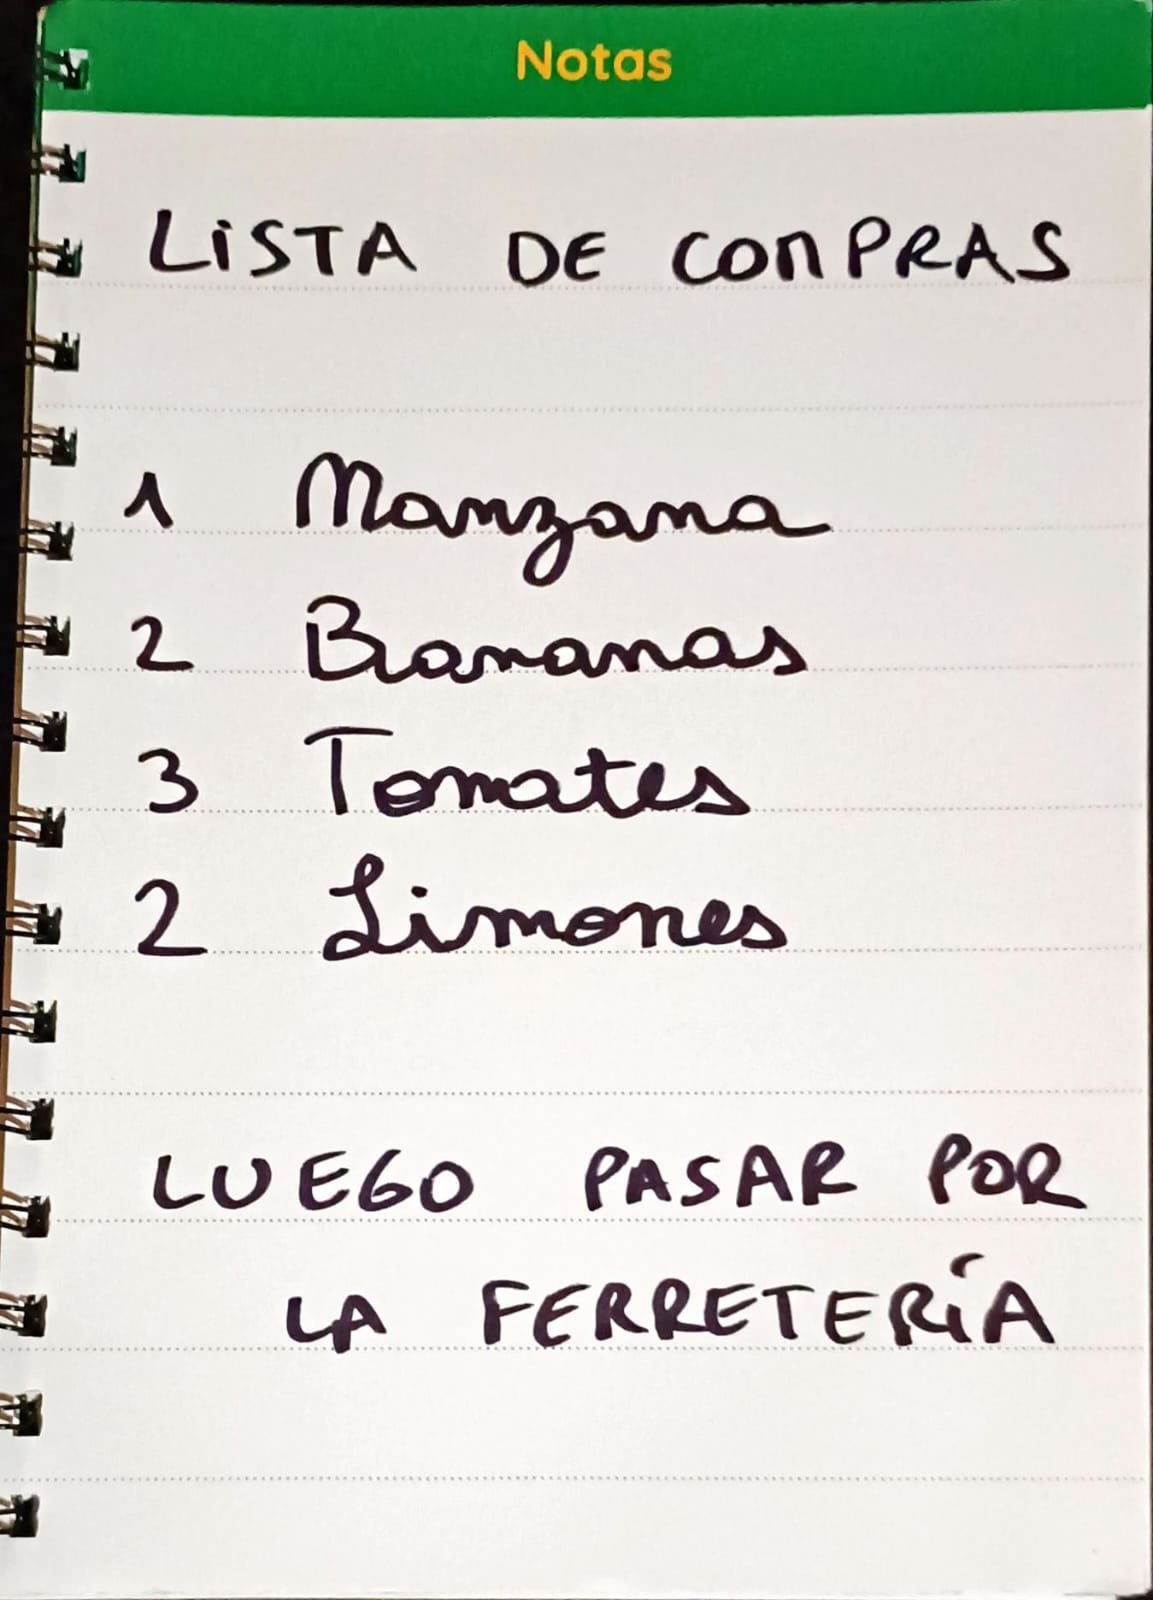 Notas
LISTA DE COMPRAS
1 Manzana
2 Bananas
3 Tomates
2 Limones
LUEGO PASAR POR
LA FERRETERÍA